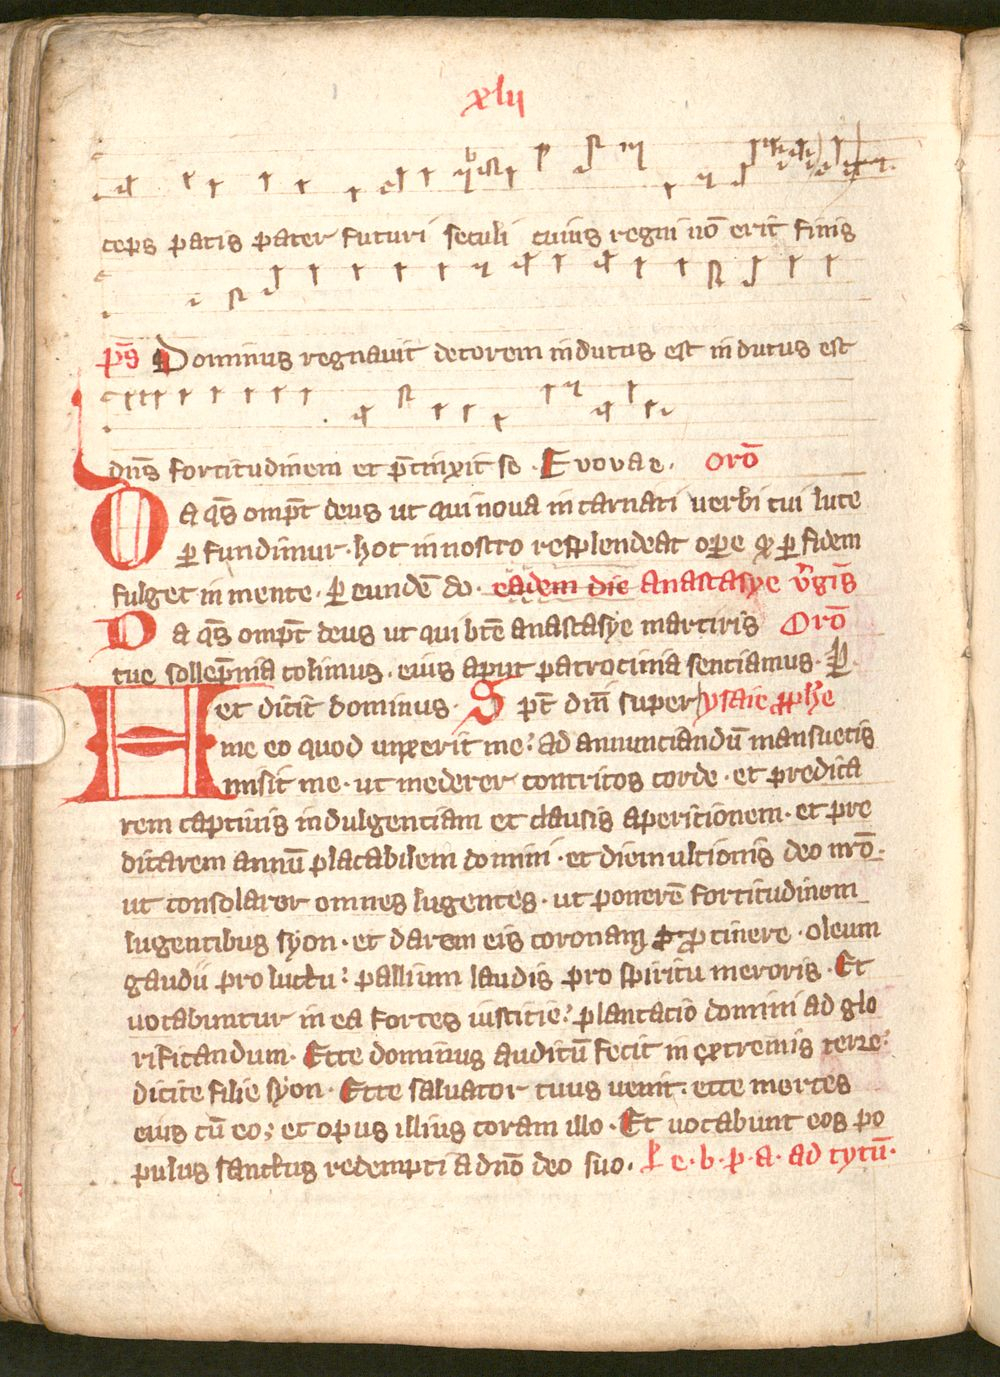 xlii
ceps pacis pater futuri seculi cuius regni nō erit finis
p̄s Dominus regnavit decorem indutus est indutus est
dn̄s fortitudinem et p̄cinxit se · Evovae · orō
Da qs̄ omp̄t deus ut qui nova incarnati verbi tui luce
ꝑ fundimur · hoc in nostro resplendeat oꝑe qͦ ꝑ fidem
fulget in mente · ꝑ eundē do · eadem die anastasye v̄gis̄
Da qs̄ omp̄t deus ut qui btē anastasye martiris Orō
tue sollep̄nia colimus · eius aput patrocinia senciamus · ꝑ
Hec dicit dominus · Sp̄c dn̄i super ysaie ꝓph̄e
me eo quod unxerit me : ad annunciandū mansuetis
misit me · ut mederer contritos corde · et predica
rem captivis indulgenciam et clausis apericionem · et pre
dicarem annū placabilem domini · et diem ulcionis deo nr̄o ·
ut consolarer omnes lugentes · ut ponerē fortitudinem
lugentibus syon · et darem eis coronam ꝓ cinere · oleum
gaudii pro luctu : pallium laudis pro spiritu meroris · Et
vocabuntur in ea fortes iusticie : plantacio domini ad glo
rificandum · Ecce dominus auditū fecit in extremis terre :
dicite filie syon · Ecce salvator tuus venit · ecce merces
eius cū eo ; et opus illius coram illo · Et vocabunt eos po
pulus sanctus redempti a dn̄o deo suo · l e · b · p · a · ad tytū ·